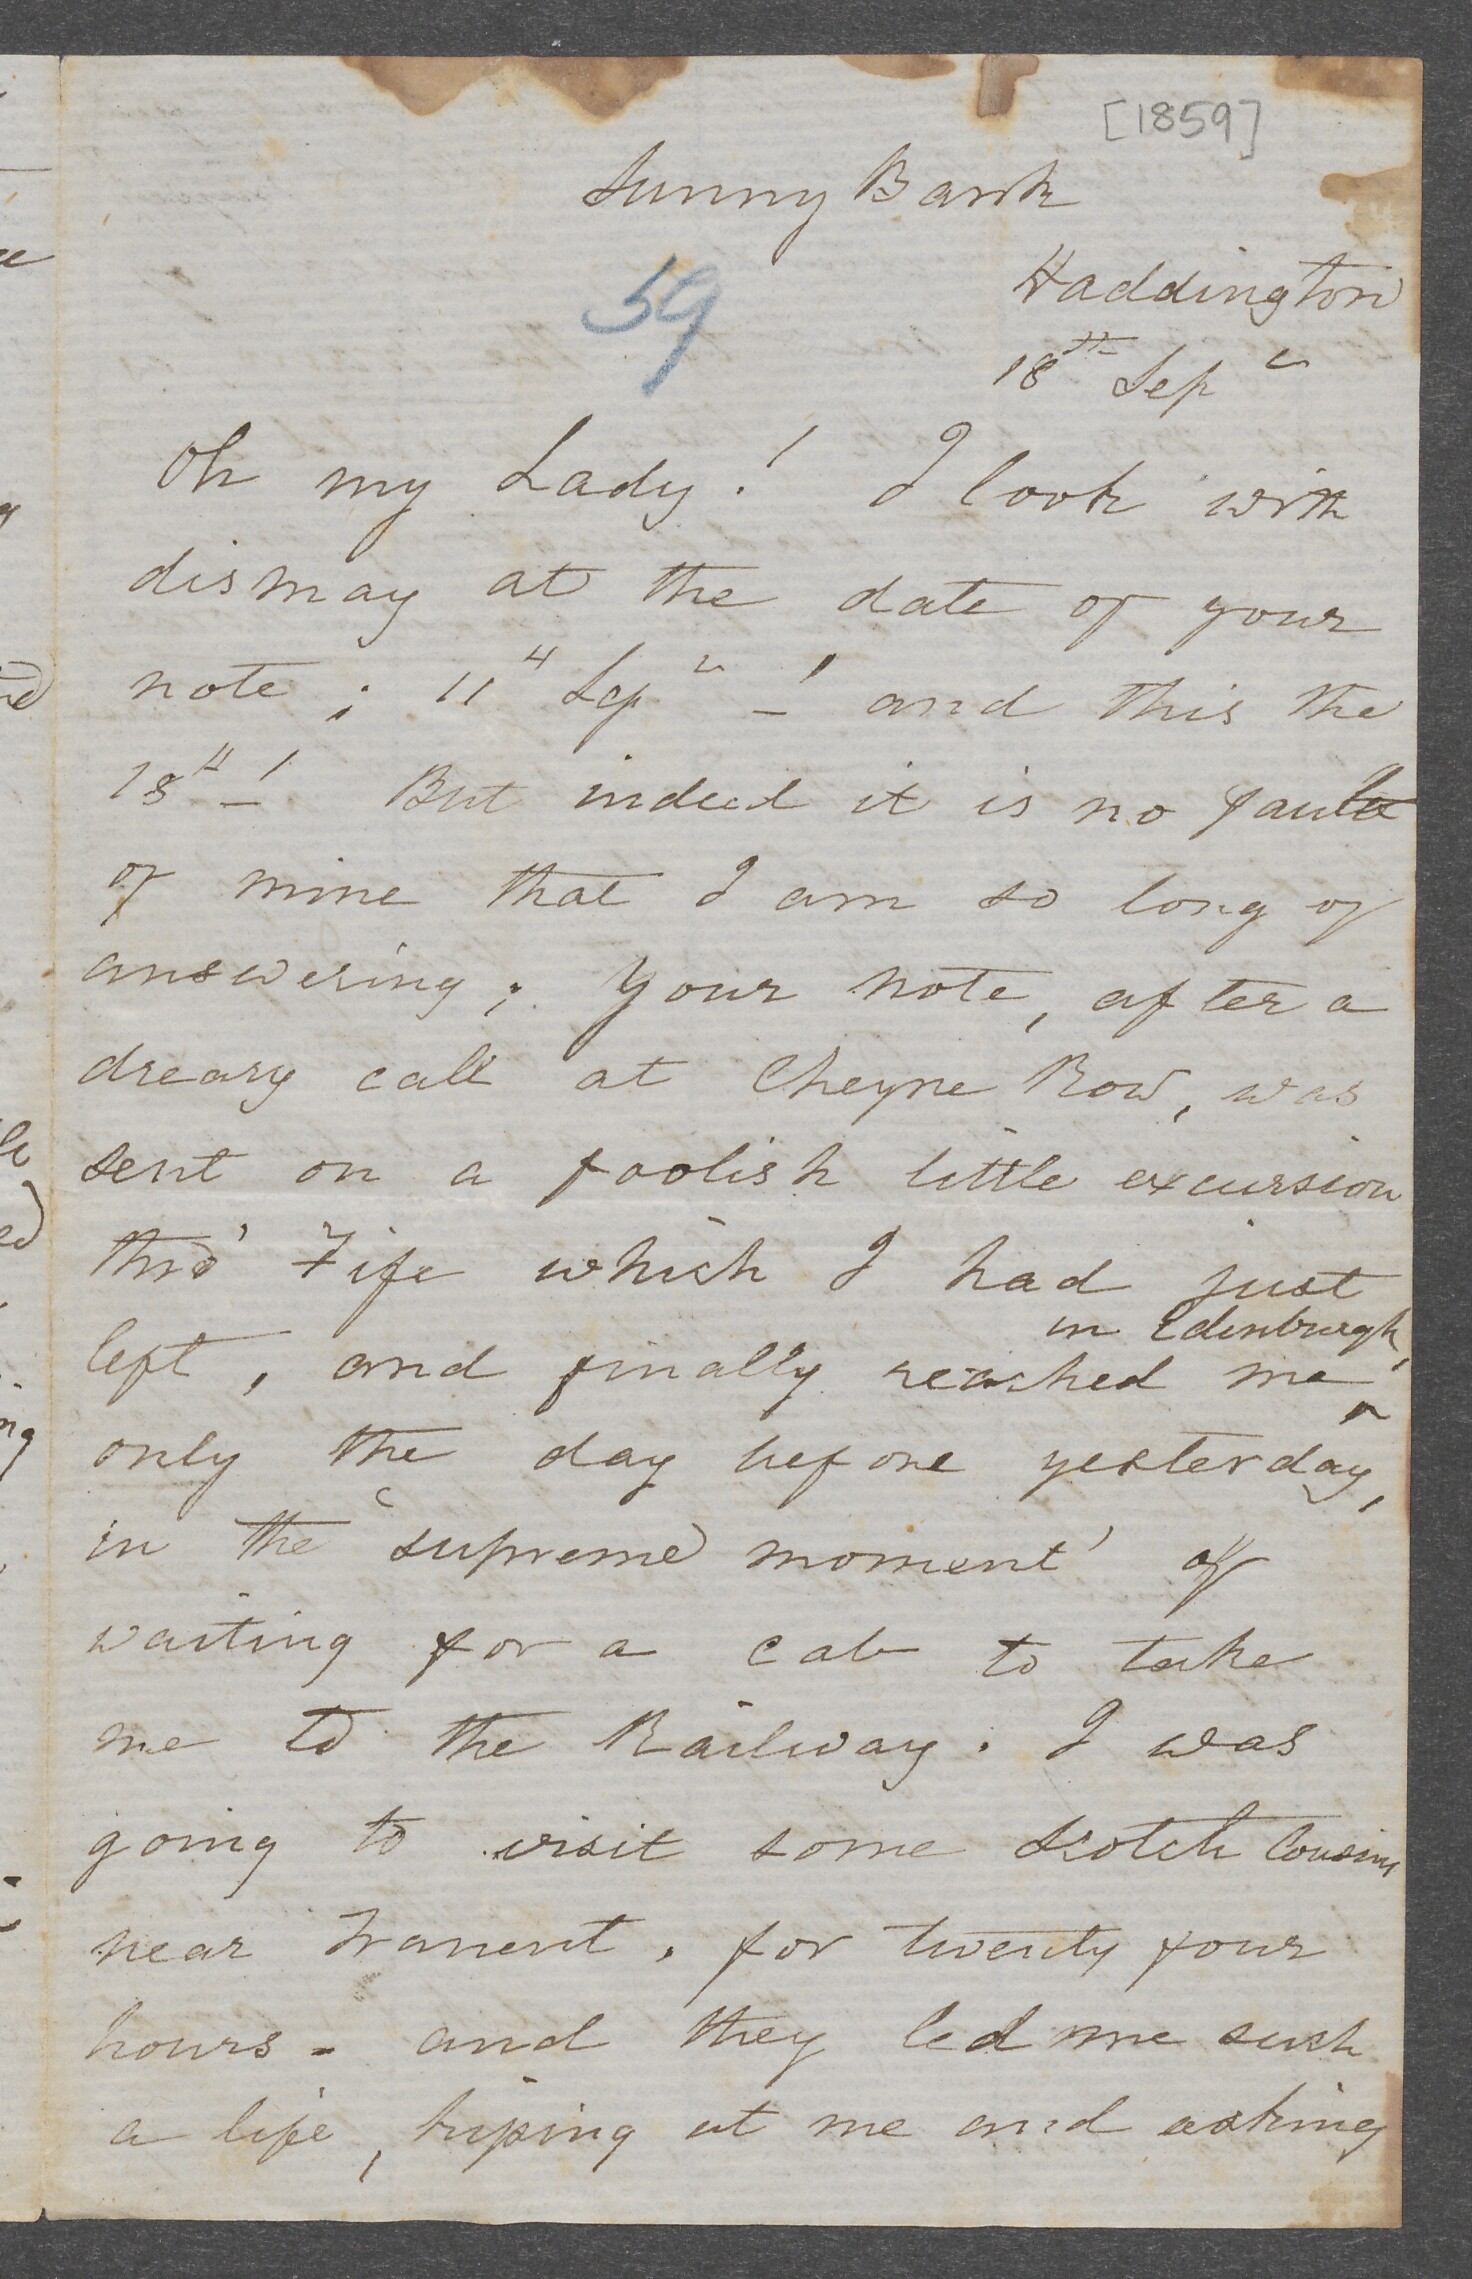 [1859]
Sunny Bank
Haddington
59
18th Sepr
Oh my Lady! I look with
dismay at the date of your
note; 11th Sepr—! and this the
18th—! But indeed it is no fault
of mine that I am so long of
answering; your note, after a
dreary call at Cheyne Row, was
sent on a foolish little excursion
thro' Fife which I had just
left, and finally reached me in Edinburgh,
only the day before yesterday,
in the 'supreme moment' of
waiting for a cab to take
me to the Railway. I was
going to visit some Scotch Cousins
near Tranent, for twenty four
hours - and they led me such
a life, at me and asking